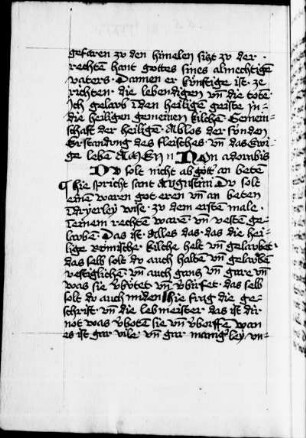 gefaren zů den himelen sitzt zů der
rechten hant gottes sines almechtigē
vaters · Dannen er künftige ist ze
richten die lebendigen vn̄ die toten
Ich gelaub in den heiligē geiste in
die heiligen gemeinen kilchē Gemein
schaft der heiligē Ablos der sünden
Erstandung des fleisches vn̄ das ewi
ge lebē Amen Non adorabis
Du solt nicht abgöt an betē
Hie spricht sant Augustin Dv solt
einē waren got eren vn̄ an beten
in dryerley wise · zů dem ersten male ·
in einem rechtē waren vn̄ vesten ge
lawbē Das ist Alles das das die hei
lige Römische kilche helt vn̄ gelawbet
das selb solt dv auch haltē vn̄ gelaubē
vestiglichē vn̄ auch gantz vn̄ gare vn̄
was sie v̄bütet vn̄ v̄würfet das selb
solt dv auch miden Hie frag die ge
schrift vn̄ die lebmeister das ist dir
not was v̄botē sie vn̄ v̄worffē wan
es ist gar vile vn̄ gar manig ley vn